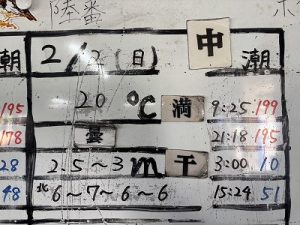 陸番
中
朝 2/2(日) 潮
195 20 ℃ 満 9:25 199
178 曇 21:18 195
28 2.5~3m 干 3:00 10
48 北 6~7~6~6 15:24 51